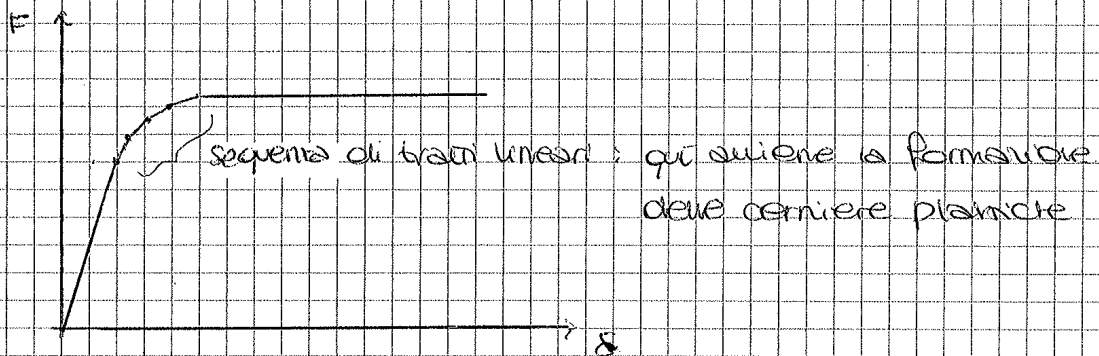 F
sequenza di tratti lineari : qui avviene la formazione
delle cerniere plastiche
δ